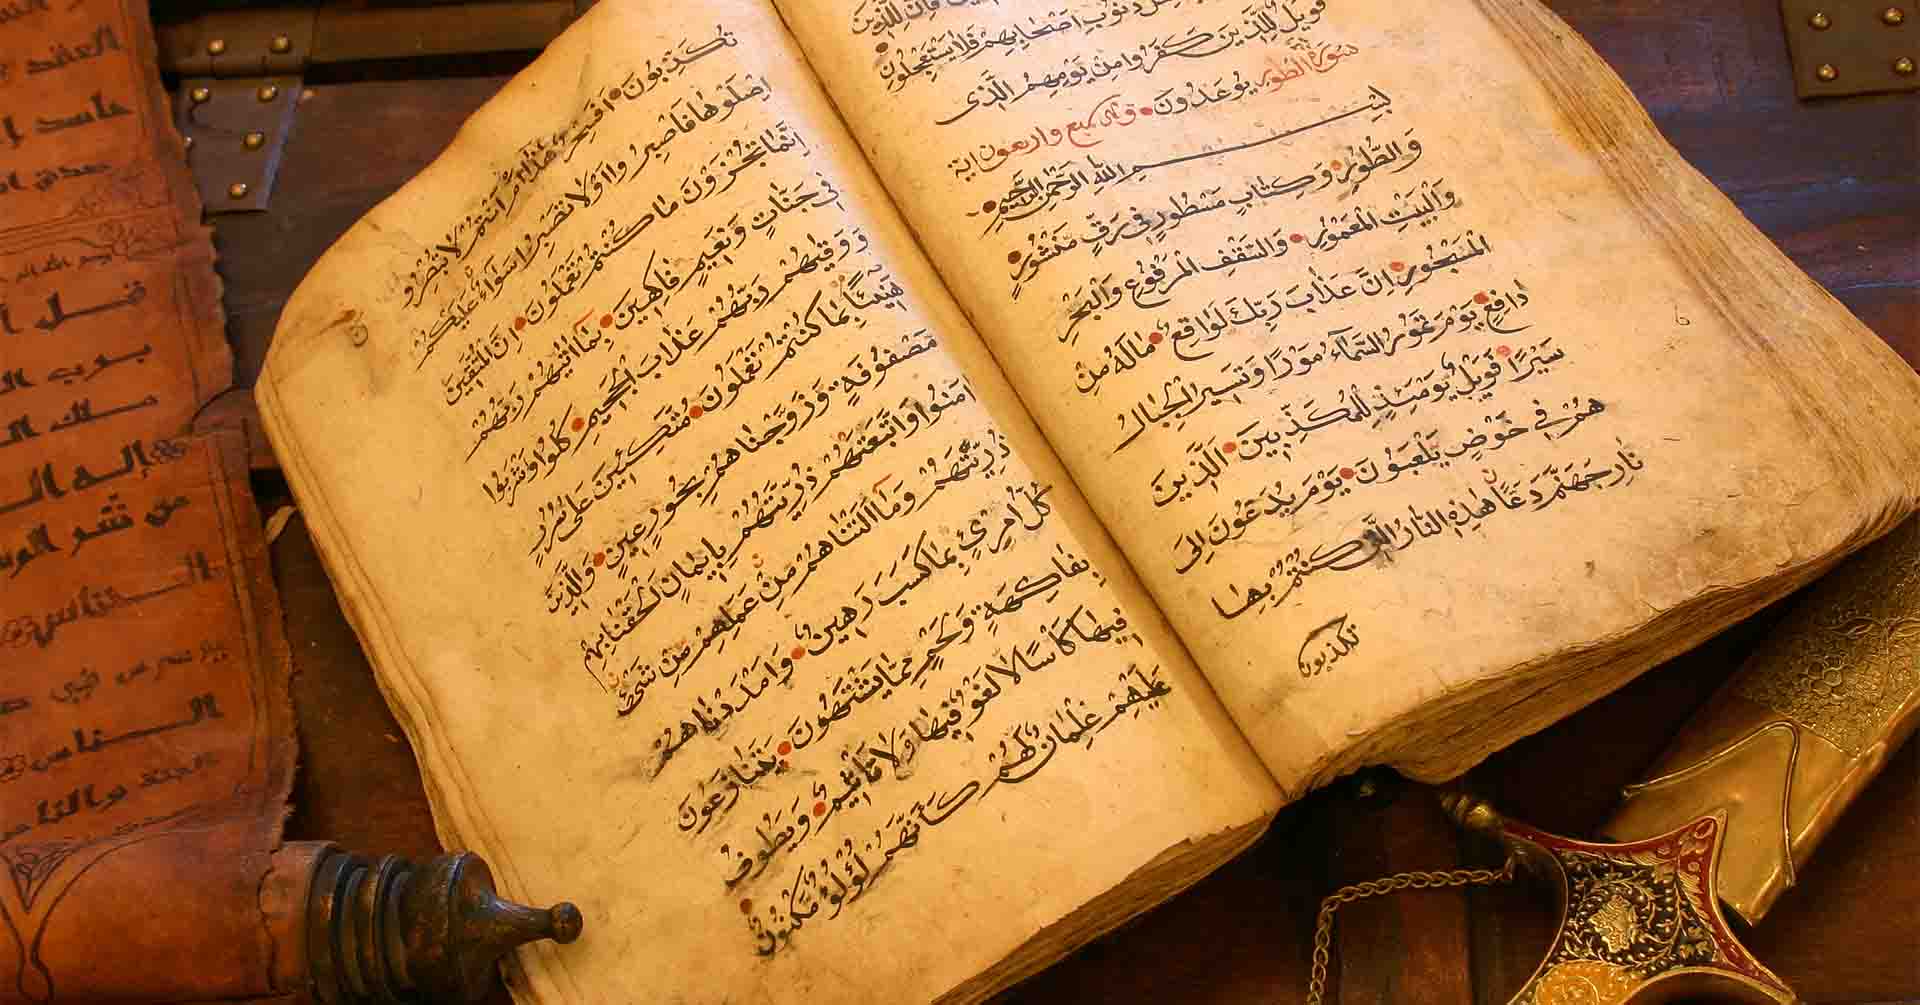 ذنوب اصحابهم فلا يستعجلون
فويل للذين كفروا من يومهم الذي
يوعدون سورة الطور
واربعون اية
بِسْمِ اللهِ الرَّحْمٰنِ الرَّحِيمِ
وَالطُّورِ وَكِتَابٍ مَسْطُورٍ فِي رَقٍّ مَنْشُورٍ
وَالْبَيْتِ الْمَعْمُورِ وَالسَّقْفِ الْمَرْفُوعِ وَالْبَحْرِ
الْمَسْجُورِ اِنَّ عَذَابَ رَبِّكَ لَوَاقِعٌ مَالَهُ مِنْ
دَافِعٍ يَوْمَ تَمُورُ السَّمَآءُ مَوْرًا وَتَسِيرُ الْجِبَالُ
سَيْرًا فَوَيْلٌ يَوْمَئِذٍ لِلْمُكَذِّبِينَ اَلَّذِينَ
هُمْ فِي خَوْضٍ يَلْعَبُونَ يَوْمَ يُدَعُّونَ اِلَى
نَارِ جَهَنَّمَ دَعًّا هٰذِهِ النَّارُ الَّتِي كُنْتُمْ بِهَا
تكذبون
تُكَذِّبُونَ اَفَسِحْرٌ هٰذَا اَمْ اَنْتُمْ لَا تُبْصِرُونَ
اِصْلَوْهَا فَاصْبِرُوا اَوْ لَا تَصْبِرُوا سَوَآءٌ عَلَيْكُمْ
اِنَّمَا تُجْزَوْنَ مَا كُنْتُمْ تَعْمَلُونَ اِنَّ الْمُتَّقِينَ
فِي جَنَّاتٍ وَنَعِيمٍ فَاكِهِينَ بِمَآ اٰتٰيهُمْ رَبُّهُمْ
وَوَقٰيهُمْ رَبُّهُمْ عَذَابَ الْجَحِيمِ كُلُوا وَاشْرَبُوا
هَنِيٓئًا بِمَا كُنْتُمْ تَعْمَلُونَ مُتَّكِئِينَ عَلَى سُرُرٍ
مَصْفُوفَةٍ وَزَوَّجْنَاهُمْ بِحُورٍ عِينٍ وَالَّذِينَ
اٰمَنُوا وَاتَّبَعَتْهُمْ ذُرِّيَّتُهُمْ بِاِيمَانٍ اَلْحَقْنَا بِهِمْ
ذُرِّيَّتَهُمْ وَمَآ اَلَتْنَاهُمْ مِنْ عَمَلِهِمْ مِنْ شَيْءٍ
كُلُّ امْرِئٍ بِمَا كَسَبَ رَهِينٌ وَاَمْدَدْنَاهُمْ
بِفَاكِهَةٍ وَلَحْمٍ مِمَّا يَشْتَهُونَ يَتَنَازَعُونَ
فِيهَا كَأْسًا لَا لَغْوٌ فِيهَا وَلَا تَأْثِيمٌ وَيَطُوفُ
عَلَيْهِمْ غِلْمَانٌ لَهُمْ كَاَنَّهُمْ لُؤْلُؤٌ مَكْنُونٌ
العقد
حاسد
يرب
ملك
إله
من شر الوسو
الخناس
في
الناس
الجنة والناس